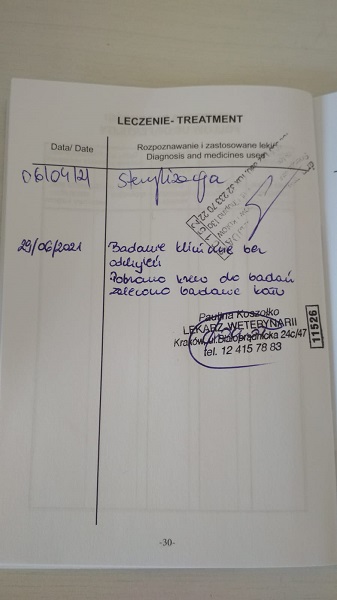 LECZENIE- TREATMENT
Data/ Date
Rozpoznawanie i zastosowane leki
Diagnosis and medicines used
06/04/21
Sterylizacja
02 233 70 22
29/06/2021
Badanie kliniczne bez
odchyleń
Pobrano krew do badań
zalecono badanie kału
Paulina Koszołko
LEKARZ WETERYNARII
Kraków, ul. Białoprądnicka 24c/47
tel. 12 415 78 83
11526
-30-